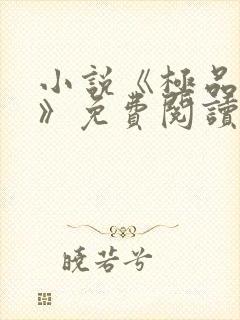 小説《極品
》免費閱讀
曉若兮